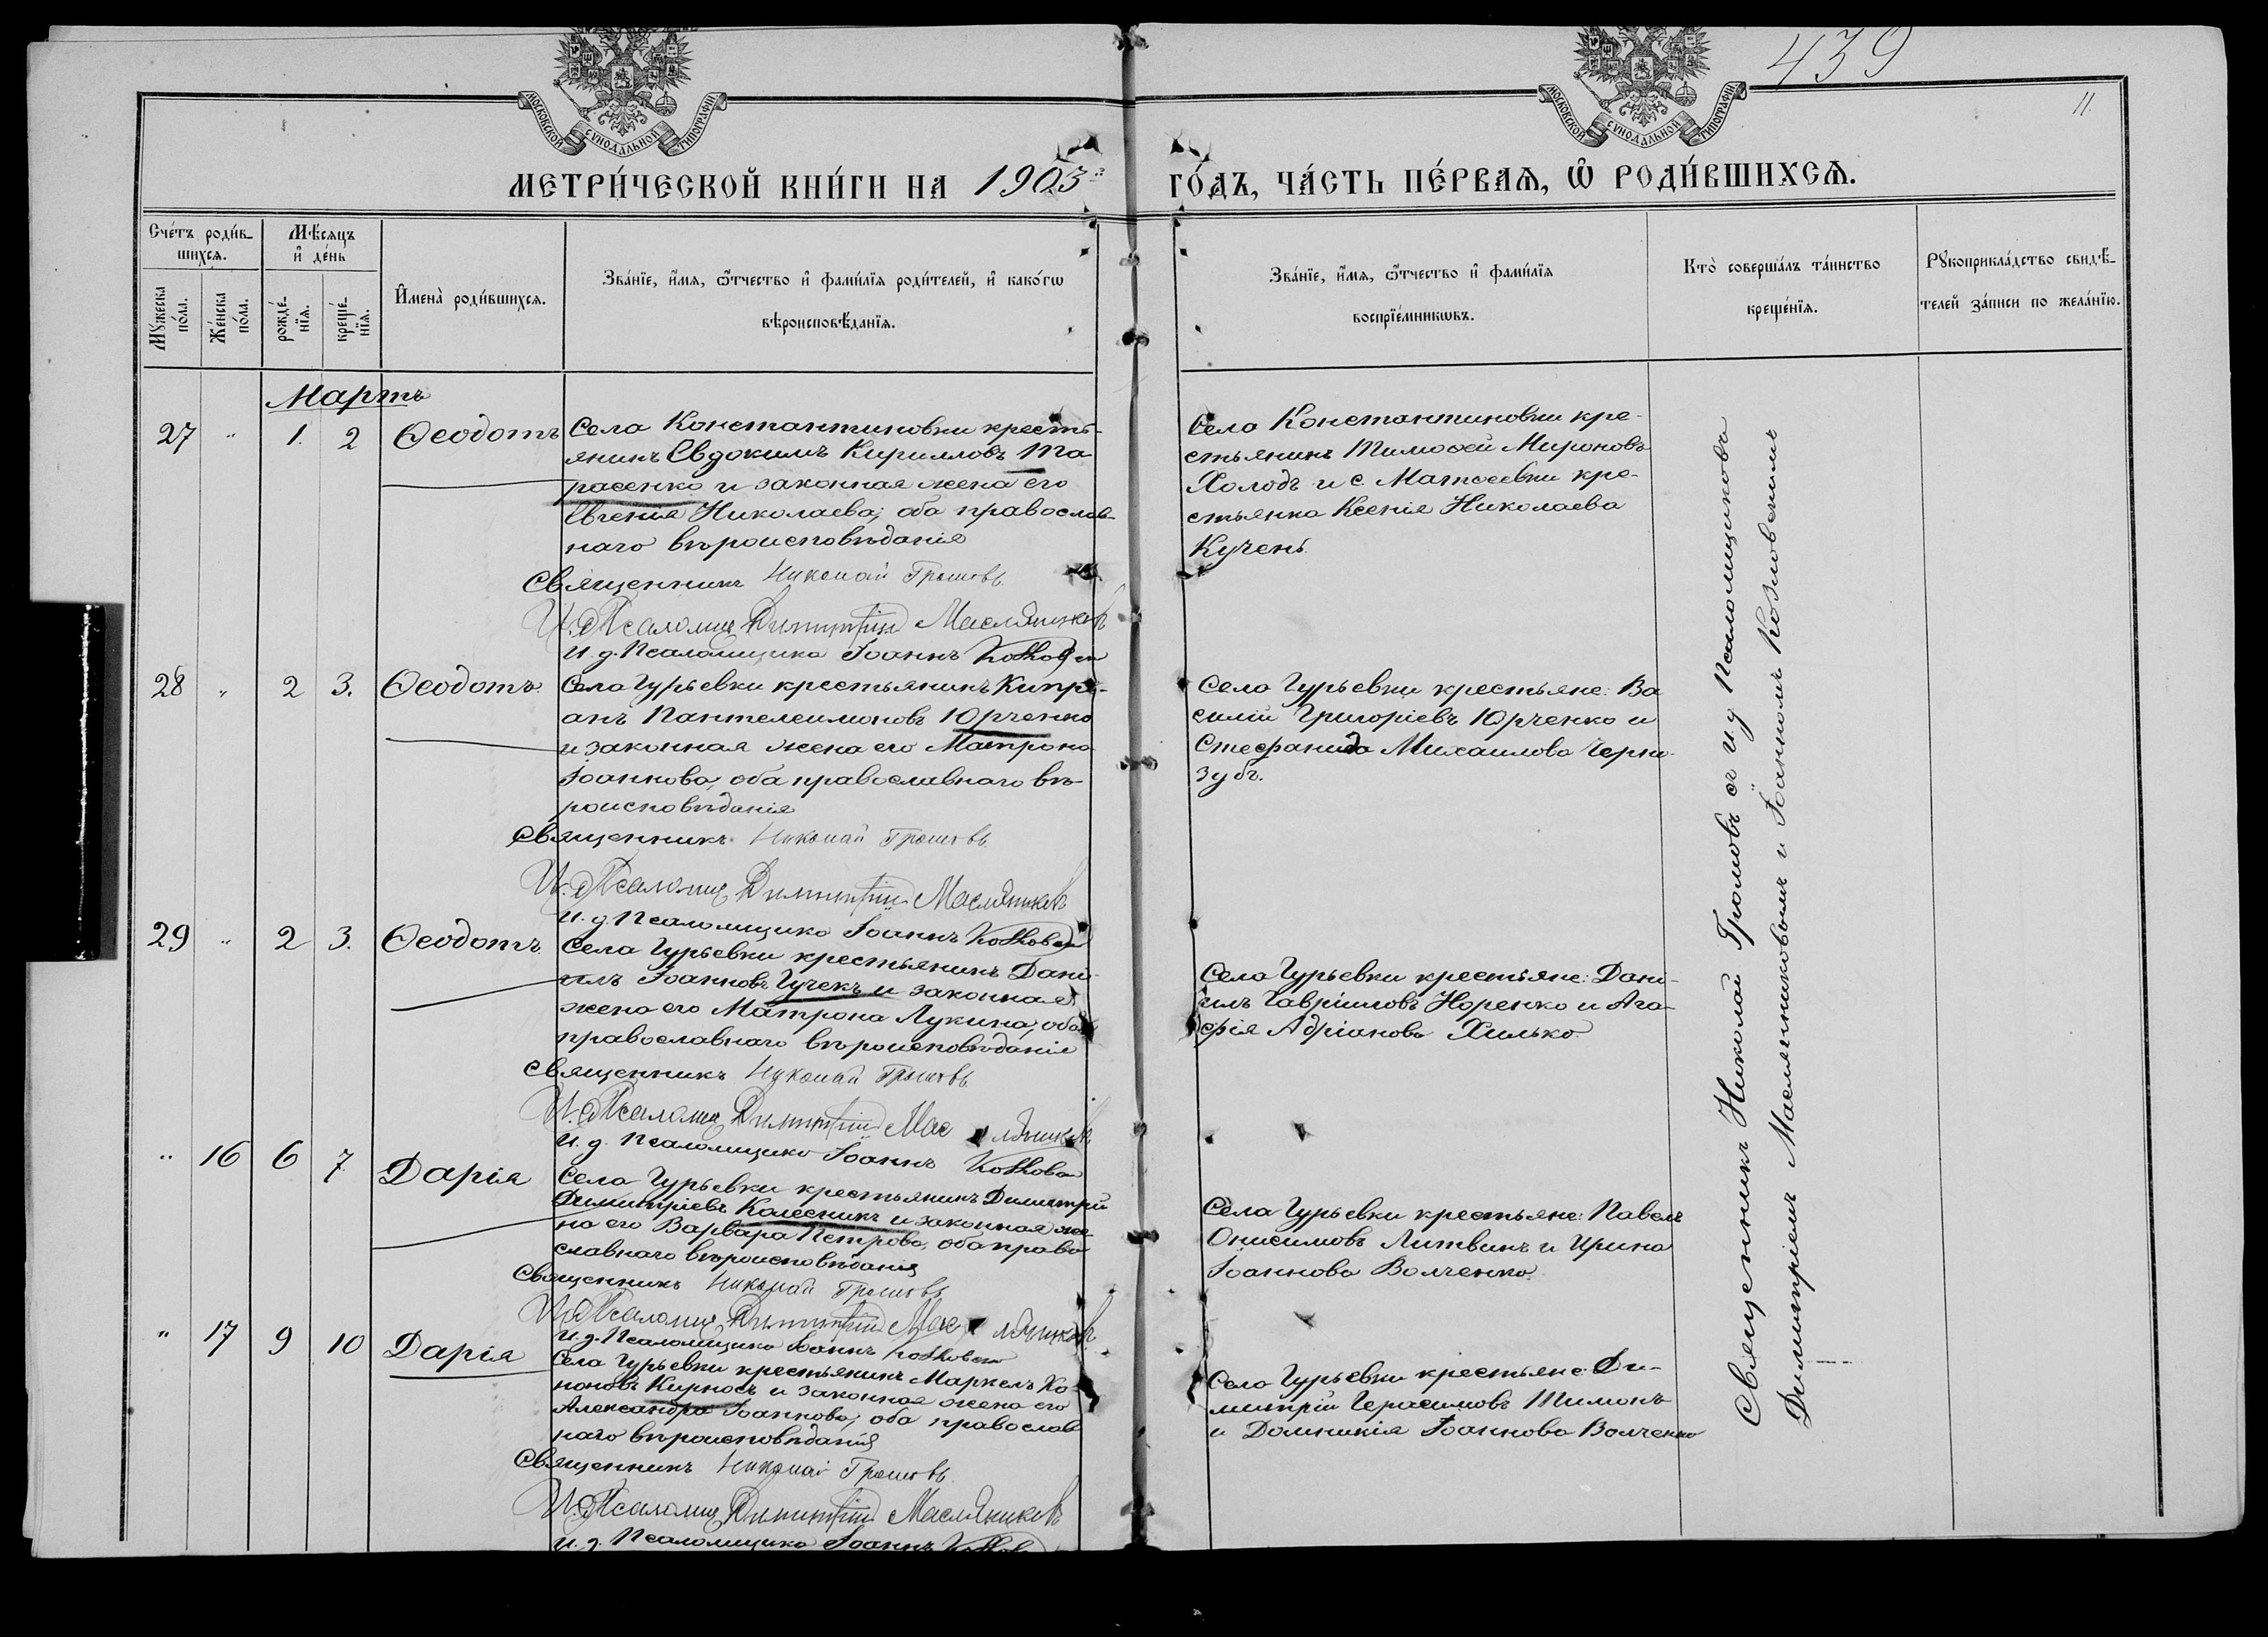 439
11
МОСКОВСКОЙ СѴНОДАЛЬНОЙ ТИПОГРАФІИ
МОСКОВСКОЙ СѴНОДАЛЬНОЙ ТИПОГРАФІИ
МЕТРИ́ЧЕСКОЙ КНИ́ГИ НА 1903 й ГО́ДЪ, ЧА́СТЬ ПЕ́РВАѦ, Ѡ҆ РОДИ́ВШИХСѦ.
Сче́тъ роди́в-
шихсѧ.
Мꙋжеска по́ла.
Же́нска по́ла.
Мѣ́сѧцъ и҆ де́нь
рожде́-нїѧ.
креще́-нїѧ.
И҆мена̀ роди́вшихсѧ.
Зва́нїе, и҆́мѧ, ѻ҆́тчество и҆ фами́лїѧ роди́телей, и҆ како́гѡ
вѣроисповѣ́данїѧ.
Зва́нїе, и҆́мѧ, ѻ҆́тчество и҆ фами́лїѧ
воспрїе́мникѡвъ.
Кто̀ соверша́лъ та́инство
креще́нїѧ.
Рꙋкоприкла́дство свидѣ́-
телей за́писи по жела́нїю.
Мартъ
27 " 1. 2 Ѳеодотъ
Села Константиновки кресть-
янинъ Евдокимъ Кирилловъ Та-
расенко и законная жена его
Евгенія Николаева; оба православ-
наго вѣроисповѣданія
Священникъ Николай Громовъ
И. д. Псаломщ. Димитрій Маслянников
И. д. Псаломщика Іоаннъ
Села Константиновки кре-
стьянинъ Тимоѳей Мироновъ
Холодъ и с. Матѳеевки кре-
стьянка Ксенія Николаева
Кучень
28 " 2 3. Ѳеодотъ
Села Гурьевки крестьянинъ Кипрі-
анъ Пантелеимоновъ Юрченко
и законная жена его Матрона
Іоаннова, оба православнаго вѣ-
роисповѣданія
Священникъ Николай Громовъ
И. д. Псаломщ. Димитрій Маслянников
И. д. Псаломщика Іоаннъ
Села Гурьевки крестьяне: Ва
силій Григоріевъ Юрченко и
Стефанида Михаилова Черно-
зубъ.
29 " 2 3. Ѳеодотъ
Села Гурьевки крестьянинъ Дані-
илъ Іоанновъ Гучекъ и законная
жена его Матрона Лукина, оба
православнаго вѣроисповѣданія
Священникъ Николай Громовъ
И. д. Псаломщ. Димитрій Маслянников
И. д. Псаломщика Іоаннъ
Села Гурьевки крестьяне: Дані-
илъ Гавріиловъ Норенко и Ага-
фія Адріанова Хилько.
" 16 6 7 Дарія
Села Гурьевки крестьянинъ Димитрій
Димитріевъ Колесникъ и законная же-
на его Варвара Петрова, оба право
славнаго вѣроисповѣданія
Священникъ Николай Громовъ
И. д. Псаломщ. Димитрій Маслянников
И. д. Псаломщика Іоаннъ
Села Гурьевки крестьяне: Павелъ
Онисимовъ Литвинъ и Ирина
Іоаннова Волченко.
" 17 9 10 Дарія
Села Гурьевки крестьянинъ Маркелъ Ко-
ноновъ Кирносъ и законная жена его
Александра Іоаннова, оба православ
наго вѣроисповѣданія
Священникъ Николай Громовъ
И. д. Псаломщ. Димитрій Маслянников
И. д. Псаломщика Іоаннъ
Села Гурьевки крестьяне: Ди-
митрій Герасимовъ Тимонъ
и Домникія Іоаннова Волченко
Священникъ Николай Громовъ съ и. д. Псаломщикова
Димитріемъ Маслянниковымъ и Іоанномъ Козловскимъ